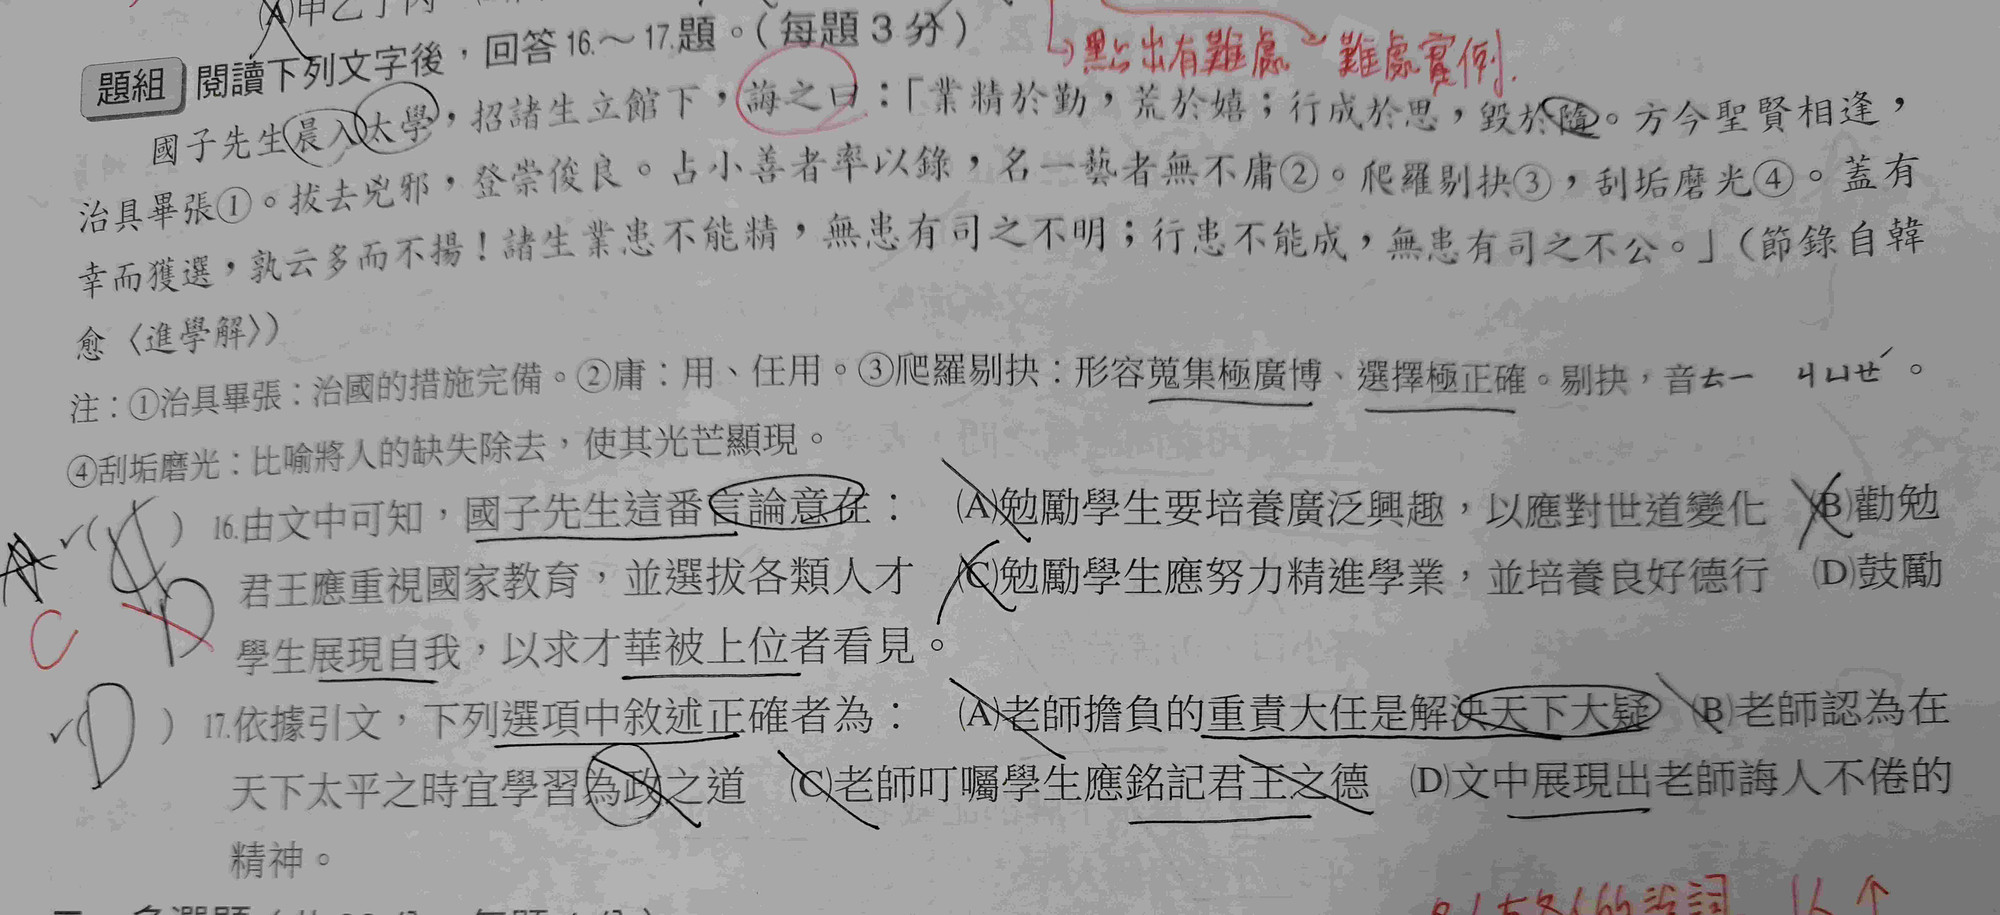 (A)甲乙丁丙
點出有難處 難處實例.
題組 閱讀下列文字後，回答16.～17.題。（每題3分）
國子先生晨入太學，招諸生立館下，誨之曰：「業精於勤，荒於嬉；行成於思，毀於隨。方今聖賢相逢，
治具畢張①。拔去兇邪，登崇俊良。占小善者率以錄，名一藝者無不庸②。爬羅剔抉③，刮垢磨光④。蓋有
幸而獲選，孰云多而不揚！諸生業患不能精，無患有司之不明；行患不能成，無患有司之不公。」（節錄自韓
愈〈進學解〉）
注：①治具畢張：治國的措施完備。②庸：用、任用。③爬羅剔抉：形容蒐集極廣博、選擇極正確。剔抉，音ㄊㄧ ㄐㄩㄝˊ。
④刮垢磨光：比喻將人的缺失除去，使其光芒顯現。
( D ) 16.由文中可知，國子先生這番言論意在： (A)勉勵學生要培養廣泛興趣，以應對世道變化 (B)勸勉
君王應重視國家教育，並選拔各類人才 (C)勉勵學生應努力精進學業，並培養良好德行 (D)鼓勵
C
學生展現自我，以求才華被上位者看見。
( D ) 17.依據引文，下列選項中敘述正確者為： (A)老師擔負的重責大任是解決天下大疑 (B)老師認為在
天下太平之時宜學習為政之道 (C)老師叮囑學生應銘記君王之德 (D)文中展現出老師誨人不倦的
精神。